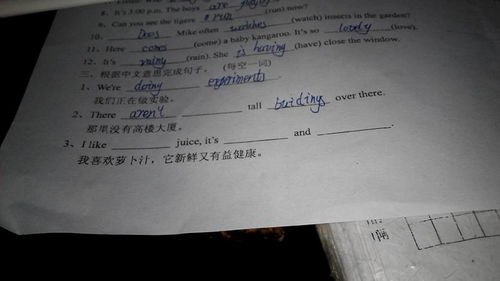 8. It's 3:00 p.m. The boys are
9. Can you see the tigers run (run) now?
10. Does Mike often watches (watch) insects in the garden?
11. Here comes (come) a baby kangaroo. It's so lovely (love).
12. It's rainy (rain). She is having (have) close the window.
三、根据中文意思完成句子。(每空一词)
1、We're doing experiments.
我们正在做实验。
2、There aren't tall buidings over there.
那里没有高楼大厦。
3、I like juice, it's and .
我喜欢萝卜汁,它新鲜又有益健康。